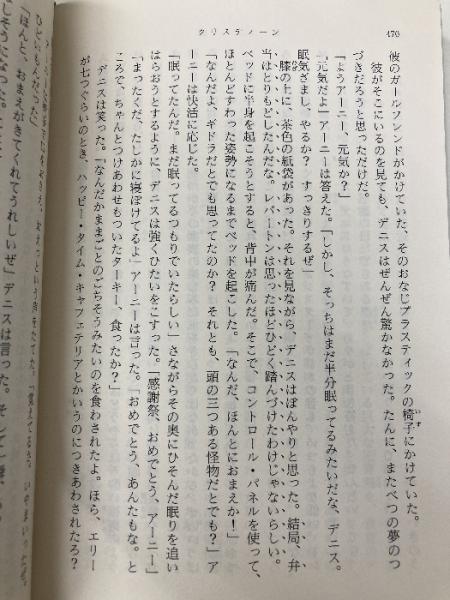 470
クリスティーン
彼のガールフレンドがかけていた、そのおなじプラスティックの椅子にかけていた。
彼がそこにいるのを見ても、デニスはぜんぜん驚かなかった。たんに、またべつの夢のつ
づきだろうと思っただけだ。
「ようアーニー、元気か？」
「元気だよ」アーニーは答えた。「しかし、そっちはまだ半分眠ってるみたいだな、デニス。
眠気ざまし、やるか？　すっきりするぜ」
膝の上に、茶色の紙袋があった。それを見ながら、デニスはぼんやりと思った。結局、弁
当はとりもどしたんだな。レパートンは思ったほどひどく踏んづけたわけじゃないらしい。
ベッドに半身を起こそうとすると、背中が痛んだ。そこで、コントロール・パネルを使って、
ほとんどすわった姿勢になるまでベッドを起こした。「なんだ、ほんとにおまえか！」
「なんだよ、ギドラだとでも思ってたのか？　それとも、頭の三つある怪物だとでも？」ア
ーニーは快活に応じた。
「眠ってたんだ。まだ眠ってるつもりでいたらしい」さながらその奥にひそんだ眠りを追い
はらおうとするように、デニスは強くひたいをこすった。「感謝祭、おめでとう、アーニー」
「まったくだ、たしかに寝ぼけてるよ」アーニーは言った。「おめでとう、あんたもな。と
ころで、ちゃんとつけあわせもついたターキー、食ったか？」
デニスは笑った。「なんだかままごとのごちそうみたいのを食わされたよ。ほら、エリー
が七つぐらいのとき、ハッピー・タイム・キャフェテリアとかいうのにつきあわされたろ？
「ほんと、おまえがきてくれてうれしいぜ」デニスは言った。